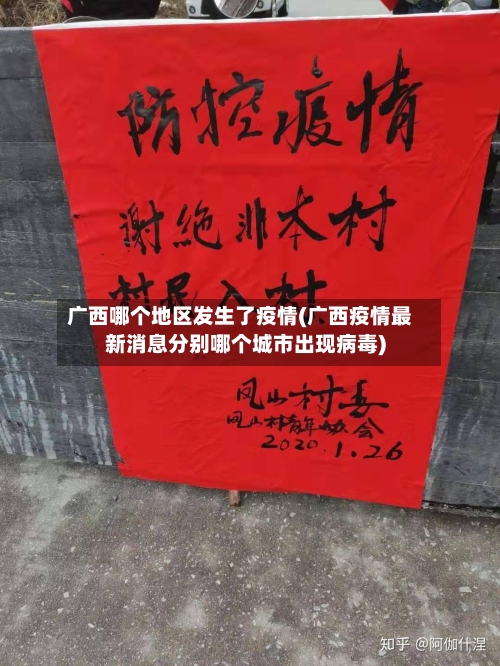 防控疫情
谢絕非本村
村民入村
广西哪个地区发生了疫情(广西疫情最
新消息分别哪个城市出现病毒)
凤山村委
凤山村青年协会
2020.1.26
知乎 @阿伽什涅